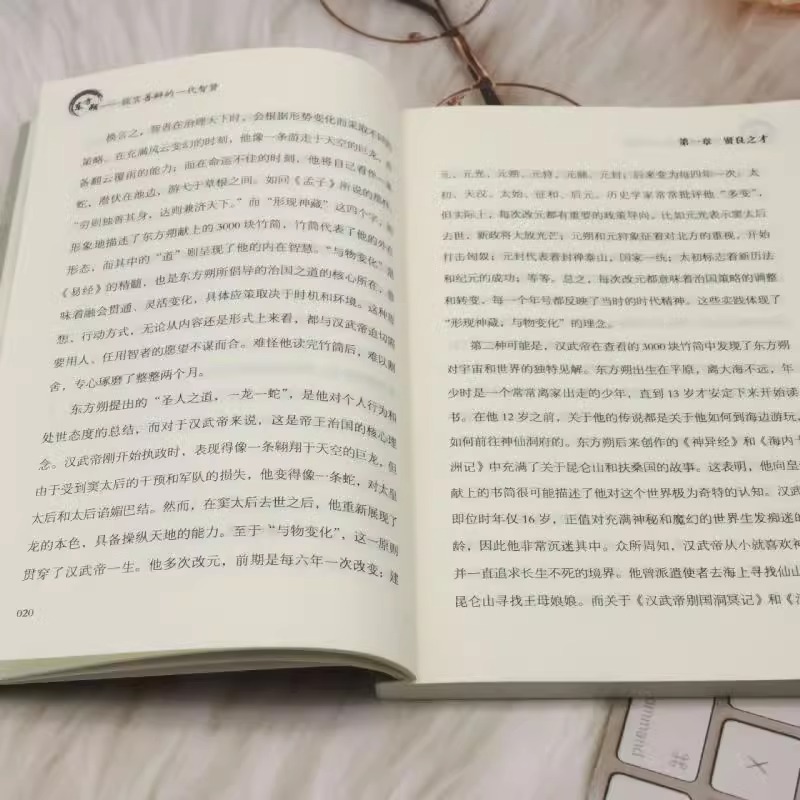 东方朔——能言善辩的一代智贤
换言之，智者在治理天下时，会根据形势变化而采取不同的
策略。在充满风云变幻的时刻，他像一条游走于天空的巨龙，具
备翻云覆雨的能力；而在命运不佳的时刻，他将自己看作一条
蛇，潜伏在池边，游弋于草根之间。如同《孟子》所说的那样
“穷则独善其身，达则兼济天下。”而“形现神藏”这四个字，
形象地描述了东方朔献上的3000块竹简，竹简代表了他的外在
形态，而其中的“道”则呈现了他的内在智慧。“与物变化”是
《易经》的精髓，也是东方朔所倡导的治国之道的核心所在，意
味着融会贯通、灵活变化，具体应策取决于时机和环境。这种思
想、行动方式，无论从内容还是形式上来看，都与汉武帝迫切需
要用人、任用智者的愿望不谋而合。难怪他读完竹简后，难以割
舍，专心琢磨了整整两个月。
东方朔提出的“圣人之道，一龙一蛇”，是他对个人行为和
处世态度的总结，而对于汉武帝来说，这是帝王治国的核心理
念。汉武帝刚开始执政时，表现得像一条翱翔于天空的巨龙，但
由于受到窦太后的干预和军队的损失，他变得像一条蛇，对太皇
太后和太后谄媚巴结。然而，在窦太后去世之后，他重新展现了
龙的本色，具备操纵天地的能力。至于“与物变化”，这一原则
贯穿了汉武帝一生。他多次改元，前期是每六年一次改变：建
020
第一章 贤良之才
元、元光、元朔、元狩、元鼎、元封；后来变为每四年一次：太
初、天汉、太始、征和、后元。历史学家常常批评他“多变”，
但实际上，每次改元都有重要的政策导向。比如元光表示窦太后
去世，新政将大放光芒；元朔和元狩象征着对北方的重视，开始
打击匈奴；元封代表着封禅泰山，国家一统；太初标志着新历法
和纪元的成功；等等。总之，每次改元都意味着治国策略的调整
和转变，每一个年号都反映了当时的时代精神。这些实践体现了
“形现神藏，与物变化”的理念。
第二种可能是，汉武帝在查看的3000块竹简中发现了东方朔
对宇宙和世界的独特见解。东方朔出生在平原，离大海不远，年
少时是一个常常离家出走的少年，直到13岁才安定下来开始读
书。在他12岁之前，关于他的传说都是关于他如何到海边游玩，
如何前往神仙洞府的。东方朔后来创作的《神异经》和《海内十
洲记》中充满了关于昆仑山和扶桑国的故事。这表明，他向皇帝
献上的书简很可能描述了他对这个世界极为奇特的认知。汉武
即位时年仅16岁，正值对充满神秘和魔幻的世界生发痴迷的
龄，因此他非常沉迷其中。众所周知，汉武帝从小就喜欢神
并一直追求长生不死的境界。他曾派遣使者去海上寻找仙山
昆仑山寻找王母娘娘。而关于《汉武帝别国洞冥记》和《汉
command
⌘
X